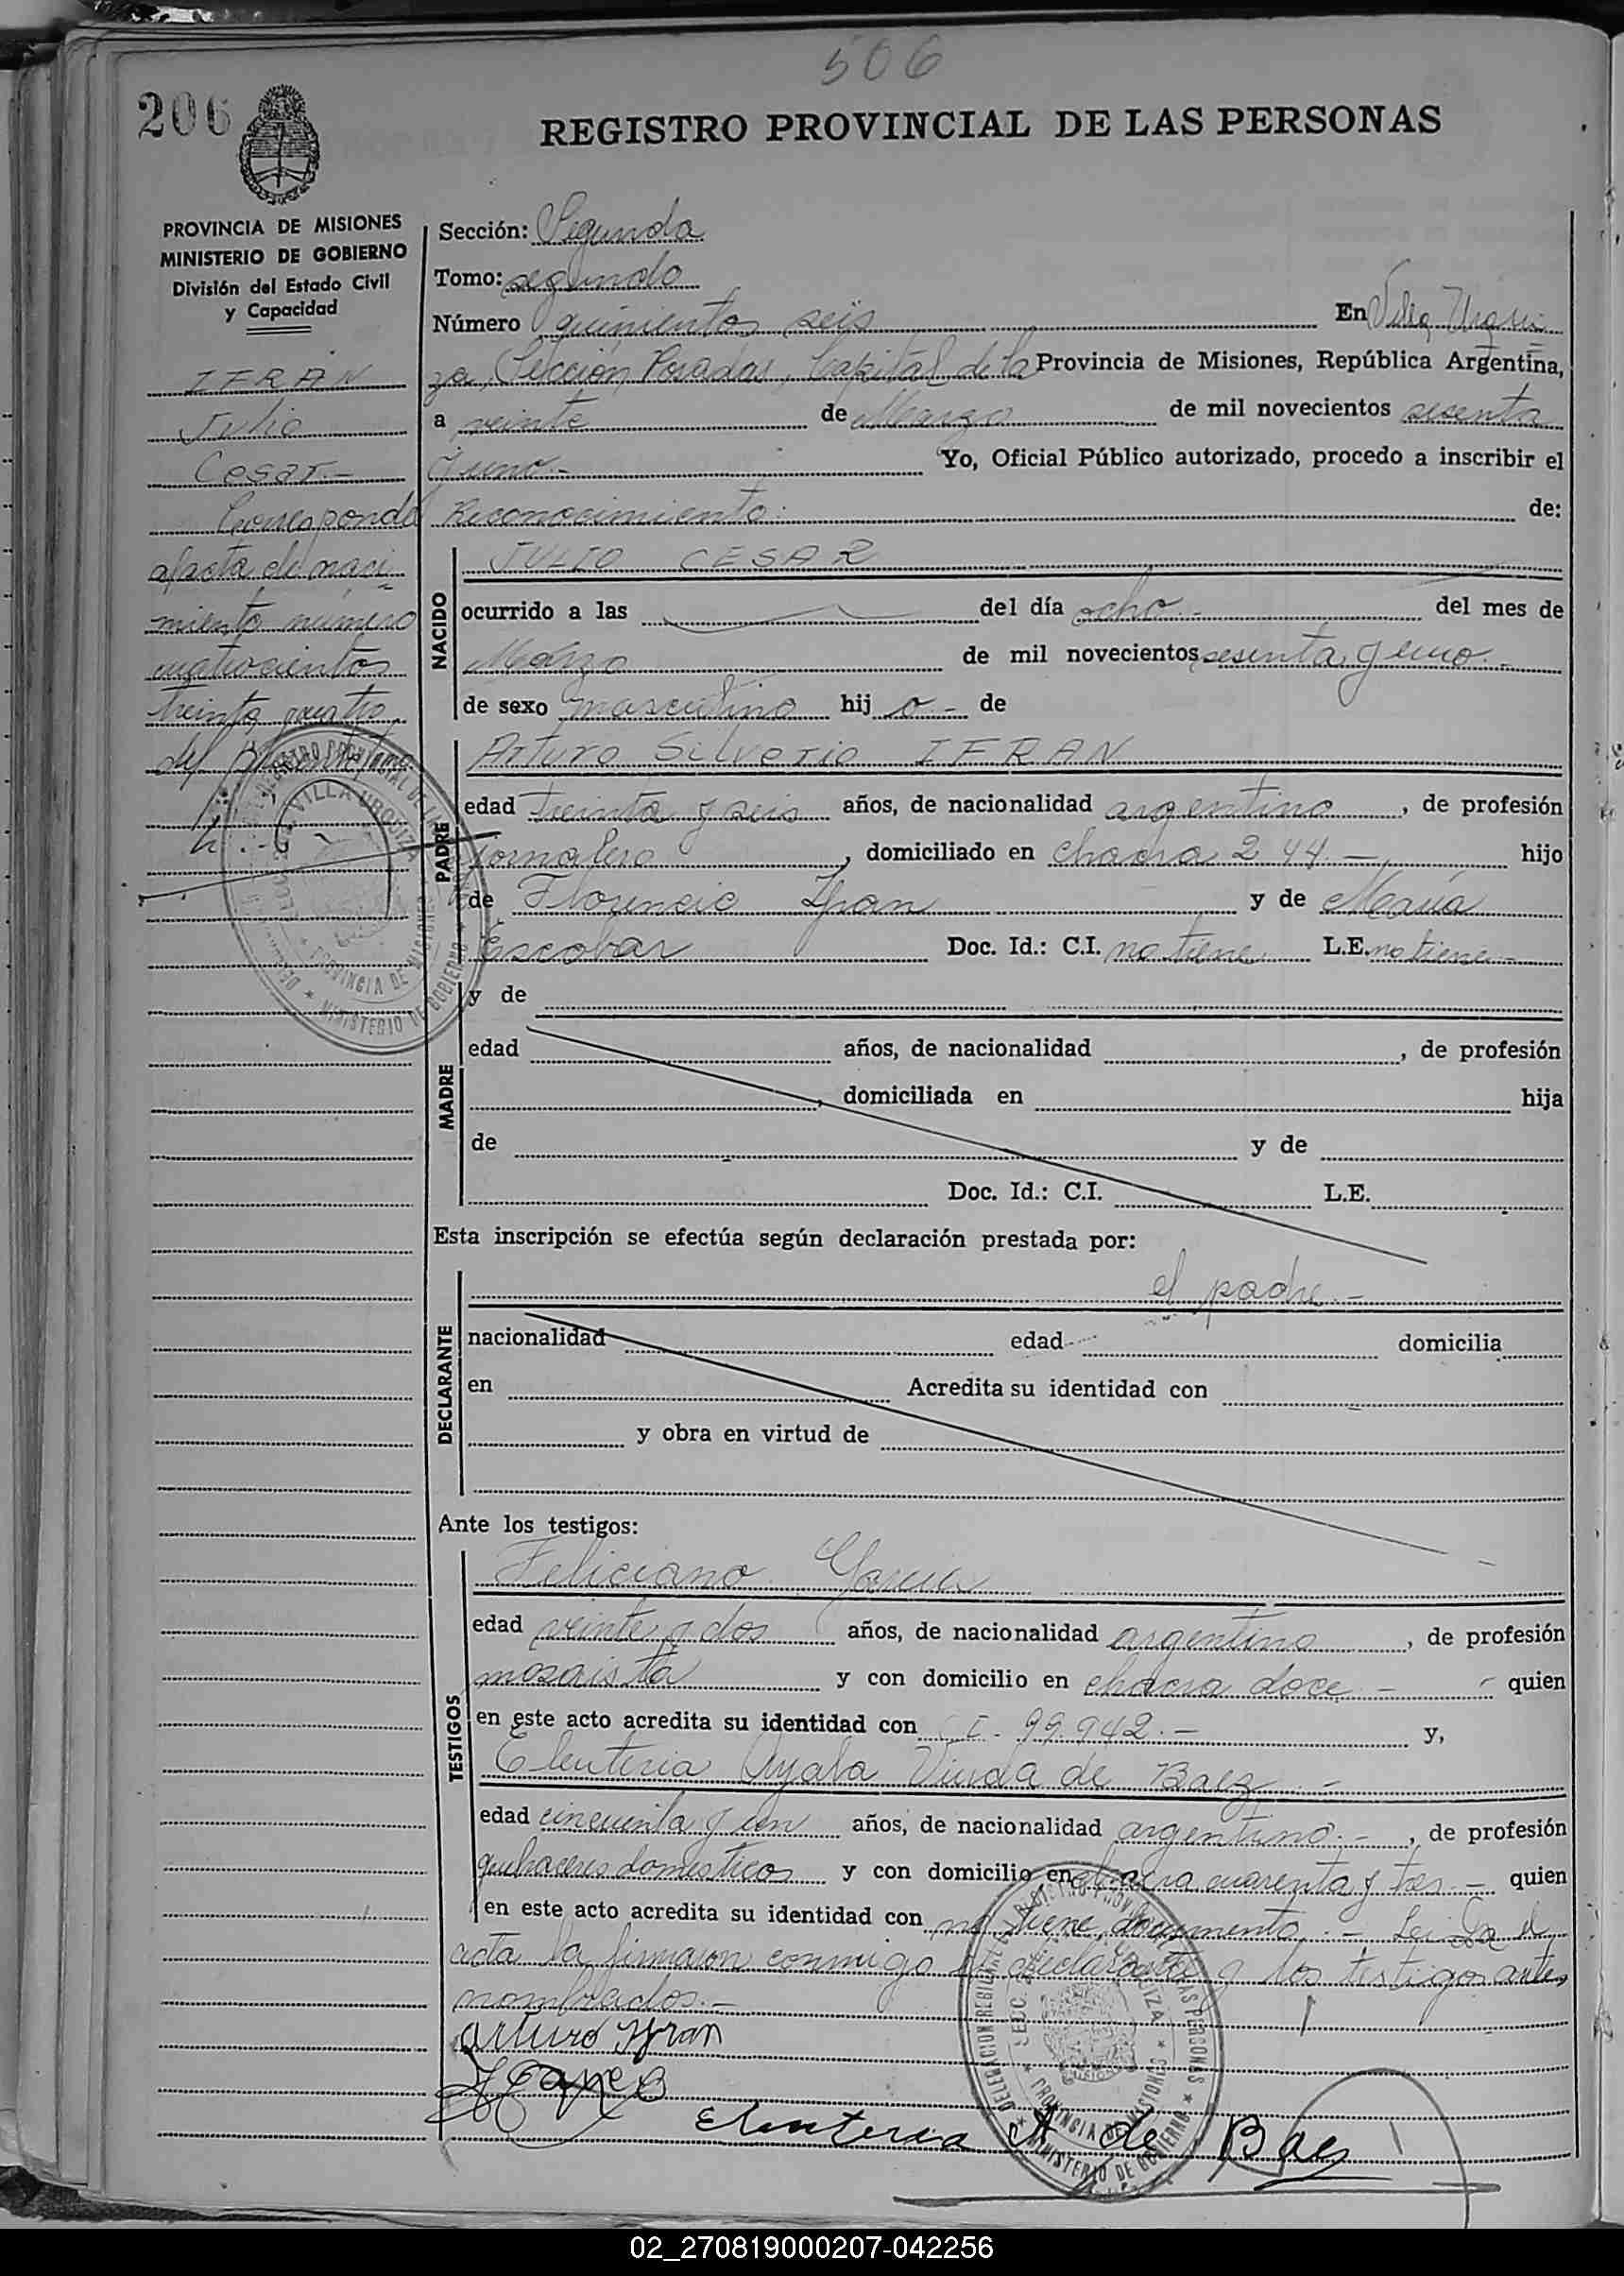 506
206
REGISTRO PROVINCIAL DE LAS PERSONAS
PROVINCIA DE MISIONES
MINISTERIO DE GOBIERNO
División del Estado Civil
y Capacidad
IFRAN
Julio
Cesar.-
Corresponde
al acta de naci
miento número
cuatrocientos
treinta cuatro
del
Sección: Segunda
Tomo: segundo
Número quinientos seis En Villa Urqui
za, Sección Posadas, Capital de la Provincia de Misiones, República Argentina,
a veinte de Marzo de mil novecientos sesenta
y uno.- Yo, Oficial Público autorizado, procedo a inscribir el
Reconocimiento: de:
NACIDO
JULIO CESAR
ocurrido a las del día ocho.- del mes de
Marzo de mil novecientos sesenta y uno.-
de sexo masculino hij o- de
PADRE
Arturo Silverio IFRAN
edad treinta y seis años, de nacionalidad argentino, de profesión
jornalero, domiciliado en chacra 244.- hijo
de Florencio Ifran y de María
Escobar Doc. Id.: C.I. no tiene L.E. no tiene-
MADRE
y de
edad años, de nacionalidad , de profesión
, domiciliada en hija
de y de
Doc. Id.: C.I. L.E.
Esta inscripción se efectúa según declaración prestada por:
DECLARANTE
el padre.-
nacionalidad edad domicilia
en Acredita su identidad con
y obra en virtud de
Ante los testigos:
TESTIGOS
Feliciano Garcia
edad veinte y dos años, de nacionalidad argentino, de profesión
mosaista y con domicilio en chacra doce.- quien
en este acto acredita su identidad con C.I. 99.942.- y,
Eleuteria Ayala Viuda de Baez.-
edad cincuenta y un años, de nacionalidad argentino.-, de profesión
quehaceres domesticos y con domicilio en chacra cuarenta y tres.- quien
en este acto acredita su identidad con no tiene documento.- Leida el
acta la firmaron conmigo el declarante y los testigos antes
nombrados.-
Arturo Ifran
Eleuteria A de Baes
REGISTRO PROVINCIAL DE LAS PERSONAS
VILLA URQUIZA
PROVINCIA DE MISIONES
MINISTERIO DE GOBIERNO
PROVINCIA DE MISIONES
MINISTERIO DE GOBIERNO
02_270819000207-042256